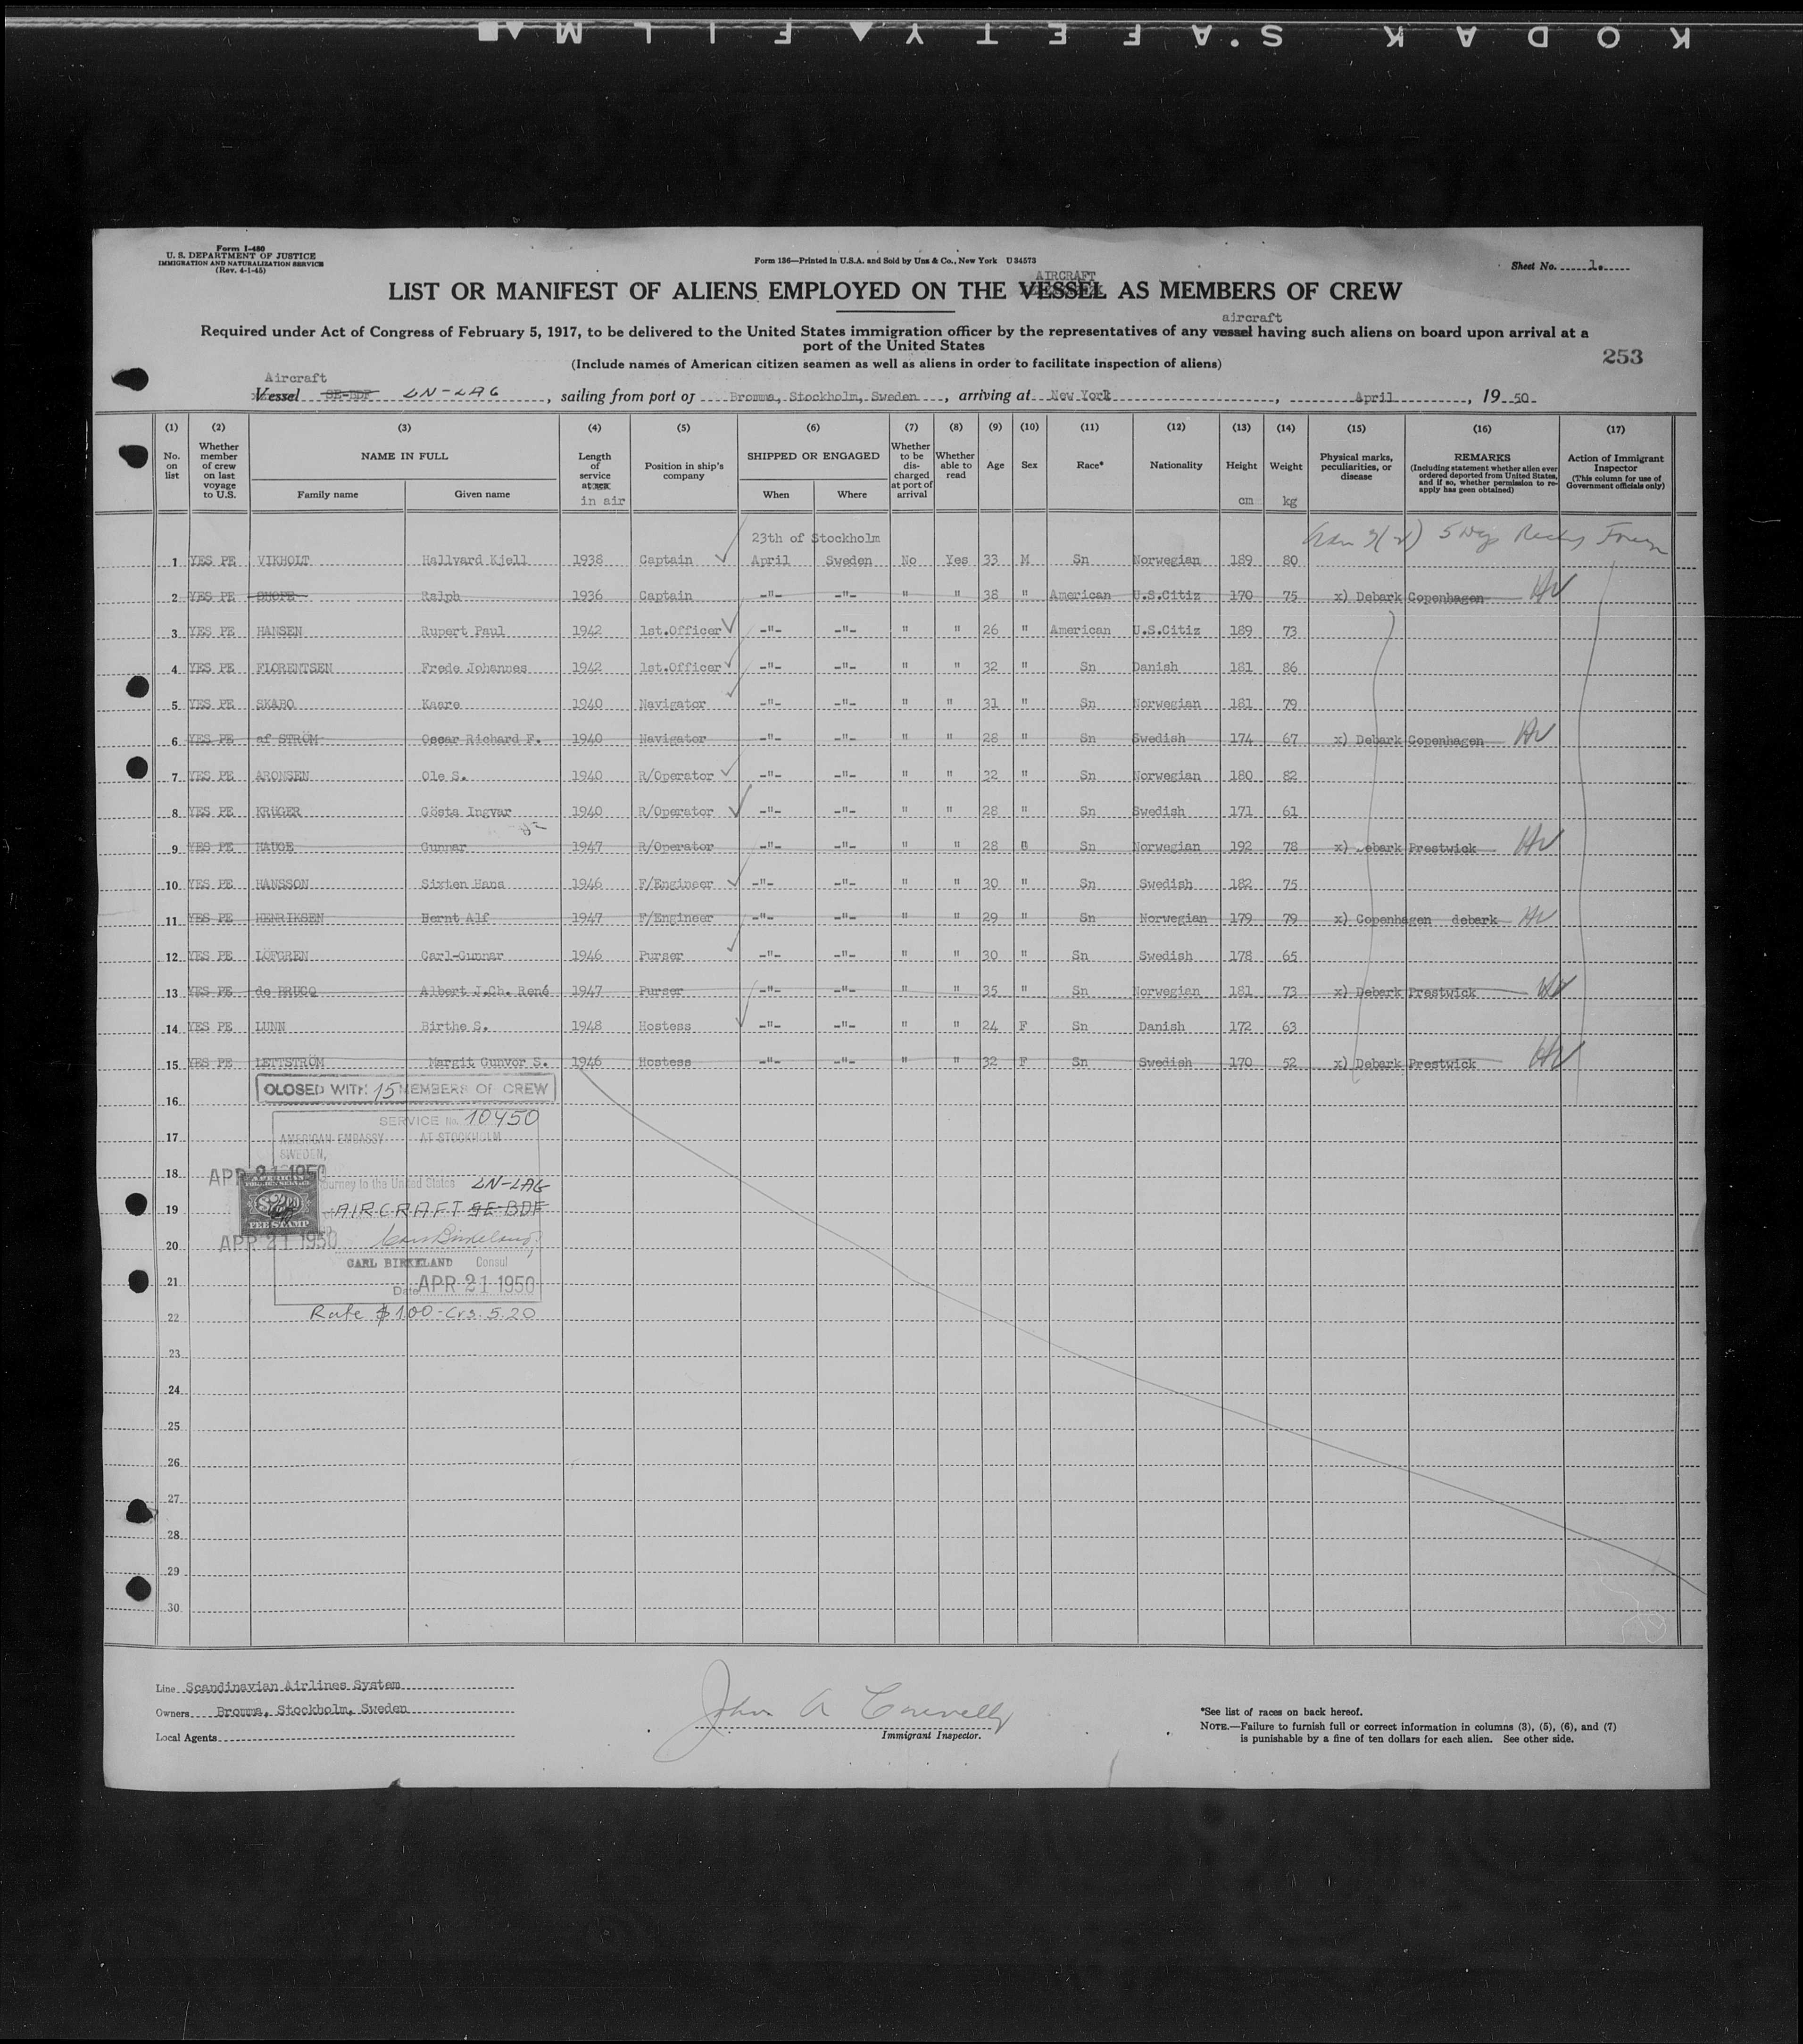 KODAK SAFETY FILM
Form I-480
U. S. DEPARTMENT OF JUSTICE
IMMIGRATION AND NATURALIZATION SERVICE
(Rev. 4-1-45)
Form 136—Printed in U.S.A. and Sold by Unz & Co., New York U 34573
Sheet No. 1.
AIRCRAFT
LIST OR MANIFEST OF ALIENS EMPLOYED ON THE VESSEL AS MEMBERS OF CREW
aircraft
Required under Act of Congress of February 5, 1917, to be delivered to the United States immigration officer by the representatives of any vessel having such aliens on board upon arrival at a
port of the United States
(Include names of American citizen seamen as well as aliens in order to facilitate inspection of aliens)
253
Aircraft
Vessel SE-BDF LN-LAG, sailing from port of Bromma, Stockholm, Sweden, arriving at New York, April, 19 50
(1) (2) (3) (4) (5) (6) (7) (8) (9) (10) (11) (12) (13) (14) (15) (16) (17)
No. on list
Whether member of crew on last voyage to U.S.
NAME IN FULL
Family name Given name
Length of service at sea
in air
Position in ship's company
SHIPPED OR ENGAGED
When Where
Whether to be discharged at port of arrival
Whether able to read
Age
Sex
Race*
Nationality
Height
cm
Weight
kg
Physical marks, peculiarities, or disease
REMARKS
(Including statement whether alien ever ordered deported from United States, and if so, whether permission to re-apply has been obtained)
Action of Immigrant Inspector
(This column for use of Government officials only)
23th of Stockholm
1 YES PE VIKHOLT Hallvard Kjell 1938 Captain April Sweden No Yes 33 M Sn Norwegian 189 80
2 YES PE Ralph 1936 Captain -"- -"- " " 38 " American U.S.Citiz 170 75 x) Debark Copenhagen
3 YES PE HANSEN Rupert Paul 1942 1st.Officer -"- -"- " " 26 " American U.S.Citiz 189 73
4 YES PE FLORENTSEN Frede Johannes 1942 1st.Officer -"- -"- " " 32 " Sn Danish 181 86
5 YES PE SKABO Kaare 1940 Navigator -"- -"- " " 31 " Sn Norwegian 181 79
6 YES PE af STRÖM Oscar Richard F. 1940 Navigator -"- -"- " " 28 " Sn Swedish 174 67 x) Debark Copenhagen
7 YES PE ARONSEN Ole S. 1940 R/Operator -"- -"- " " 32 " Sn Norwegian 180 82
8 YES PE KRÜGER Gösta Ingvar 1940 R/Operator -"- -"- " " 28 " Sn Swedish 171 61
9 YES PE HAUGE Gunnar 1947 R/Operator -"- -"- " " 28 " Sn Norwegian 192 78 x) Debark Prestwick
10 YES PE HANSSON Sixten Hans 1946 F/Engineer -"- -"- " " 30 " Sn Swedish 182 75
11 YES PE HENRIKSEN Bernt Alf 1947 F/Engineer -"- -"- " " 29 " Sn Norwegian 179 79 x) Copenhagen debark
12 YES PE LÖFGREN Carl-Gunnar 1946 Purser -"- -"- " " 30 " Sn Swedish 178 65
13 YES PE de BRUCQ Albert J.Ch. René 1947 Purser -"- -"- " " 35 " Sn Norwegian 181 73 x) Debark Prestwick
14 YES PE LUNN Birthe S. 1948 Hostess -"- -"- " " 24 F Sn Danish 172 63
15 YES PE LETTSTRÖM Margit Gunvor S. 1946 Hostess -"- -"- " " 32 F Sn Swedish 170 52 x) Debark Prestwick
CLOSED WITH 15 MEMBERS OF CREW
16
SERVICE No. 10450
17
AMERICAN EMBASSY AT STOCKHOLM
SWEDEN,
18
APR 21 1950
Journey to the United States LN-LAG
AMERICAN
FOREIGN SERVICE
FEE STAMP
19
AIRCRAFT SE-BDF
20
APR 21 1950
CARL BIRKELAND Consul
21
Date APR 21 1950
22
Rate $1.00-Crs. 5.20
23
24
25
26
27
28
29
30
Line Scandinavian Airlines System
Owners Bromma, Stockholm, Sweden
Local Agents
John A Connelly
Immigrant Inspector.
*See list of races on back hereof.
NOTE.—Failure to furnish full or correct information in columns (3), (5), (6), and (7)
is punishable by a fine of ten dollars for each alien. See other side.